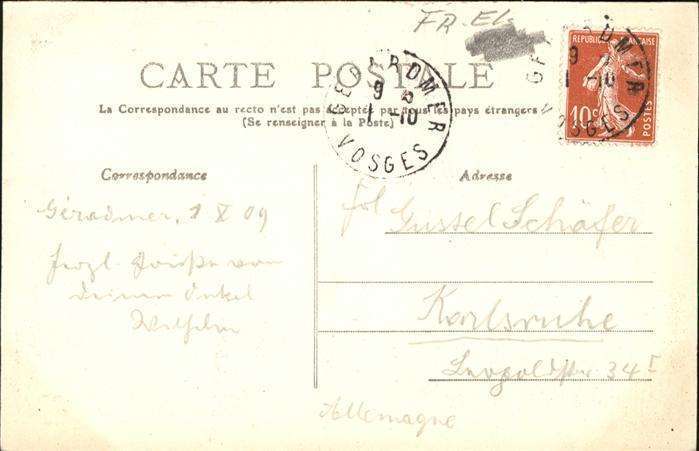 FR. El.
CARTE POSTALE
La Correspondance au recto n'est pas acceptée par tous les pays étrangers
(Se renseigner à la Poste)
GERARDMER
9
1 -10
VOSGES
REPUBLIQUE FRANÇAISE
10c
POSTES
GERARDMER
9
1 -10
VOSGES
Correspondance
Géradmer, 1 X 09
Herzl. Grüße von
Deinem Onkel
Wilhelm
Adresse
Gussel Schäfer
Karlsruhe
Leopoldstr 34 I
Allemagne